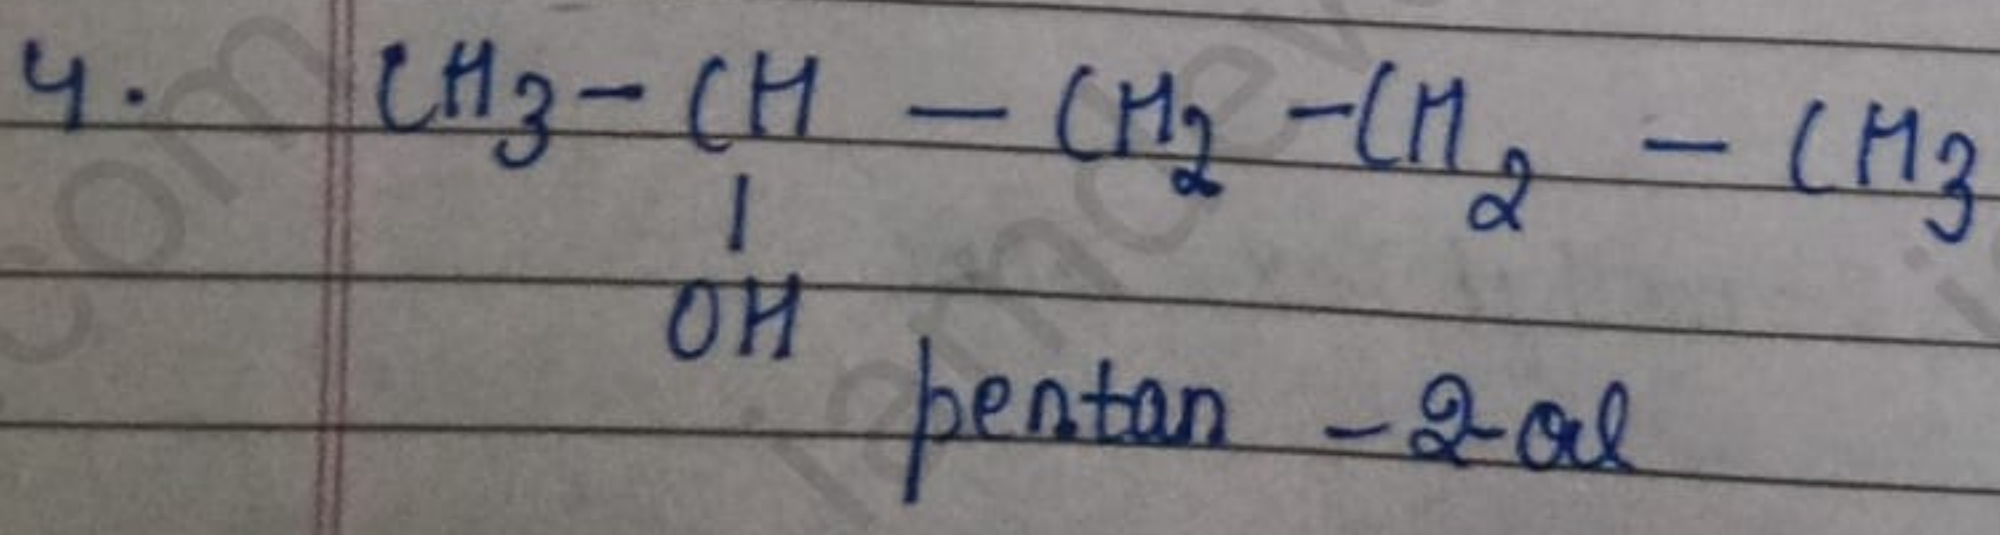 4. CH3 - CH - CH2 - CH2 - CH3
|
OH
pentan - 2-ol